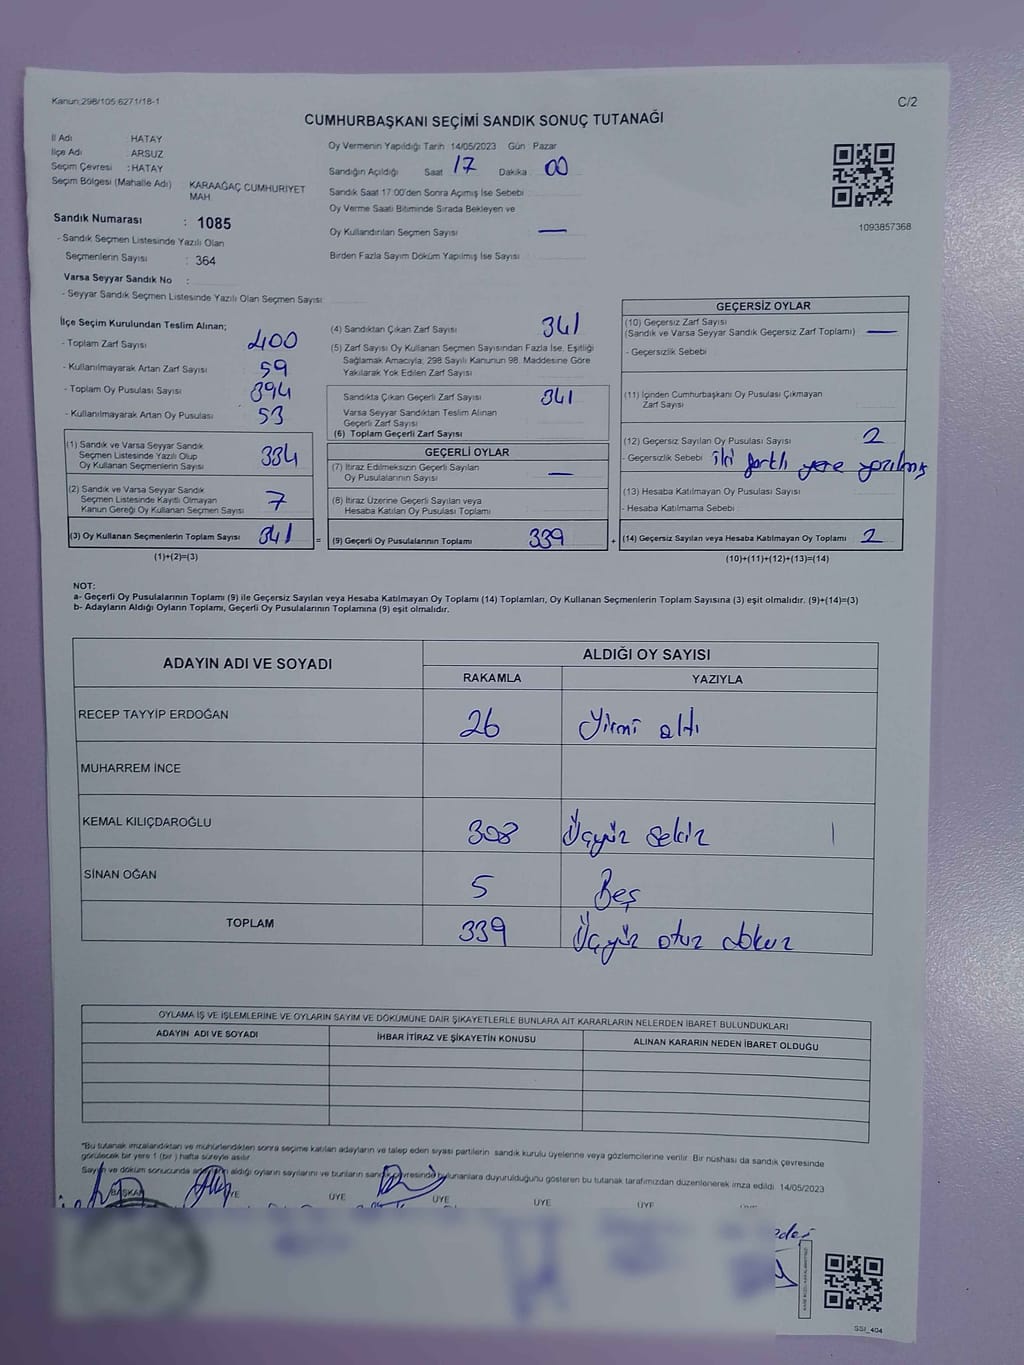 Kanun:298/105 6271/18-1
C/2
CUMHURBAŞKANI SEÇİMİ SANDIK SONUÇ TUTANAĞI
İl Adı HATAY
İlçe Adı ARSUZ
Seçim Çevresi : HATAY
Seçim Bölgesi (Mahalle Adı) KARAAĞAÇ CUMHURİYET
MAH.
Sandık Numarası : 1085
- Sandık Seçmen Listesinde Yazılı Olan
Seçmenlerin Sayısı : 364
Varsa Seyyar Sandık No :
- Seyyar Sandık Seçmen Listesinde Yazılı Olan Seçmen Sayısı
Oy Vermenin Yapıldığı Tarih 14/05/2023 Gün : Pazar
Sandığın Açıldığı Saat 17 Dakika 00
Sandık Saat 17:00'den Sonra Açımış İse Sebebi
Oy Verme Saati Bitiminde Sırada Bekleyen ve
Oy Kullandırılan Seçmen Sayısı —
Birden Fazla Sayım Döküm Yapılmış İse Sayısı
1093857368
İlçe Seçim Kurulundan Teslim Alınan;
- Toplam Zarf Sayısı 400
- Kullanılmayarak Artan Zarf Sayısı 59
- Toplam Oy Pusulası Sayısı 394
- Kullanılmayarak Artan Oy Pusulası 53
(1) Sandık ve Varsa Seyyar Sandık
Seçmen Listesinde Yazılı Olup
Oy Kullanan Seçmenlerin Sayısı 334
(2) Sandık ve Varsa Seyyar Sandık
Seçmen Listesinde Kayıtlı Olmayan
Kanun Gereği Oy Kullanan Seçmen Sayısı 7
(3) Oy Kullanan Seçmenlerin Toplam Sayısı 341 =
(1)+(2)=(3)
(4) Sandıktan Çıkan Zarf Sayısı 341
(5) Zarf Sayısı Oy Kullanan Seçmen Sayısından Fazla İse, Eşitliği
Sağlamak Amacıyla; 298 Sayılı Kanunun 98. Maddesine Göre
Yakılarak Yok Edilen Zarf Sayısı
Sandıkta Çıkan Geçerli Zarf Sayısı 341
Varsa Seyyar Sandıktan Teslim Alınan
Geçerli Zarf Sayısı
(6) Toplam Geçerli Zarf Sayısı
GEÇERLİ OYLAR
(7) İtiraz Edilmeksizin Geçerli Sayılan
Oy Pusulalarının Sayısı —
(8) İtiraz Üzerine Geçerli Sayılan veya
Hesaba Katılan Oy Pusulası Toplamı
(9) Geçerli Oy Pusulalarının Toplamı 339 +
GEÇERSİZ OYLAR
(10) Geçersiz Zarf Sayısı
(Sandık ve Varsa Seyyar Sandık Geçersiz Zarf Toplamı) —
- Geçersizlik Sebebi
(11) İçinden Cumhurbaşkanı Oy Pusulası Çıkmayan
Zarf Sayısı
(12) Geçersiz Sayılan Oy Pusulası Sayısı 2
- Geçersizlik Sebebi iki farklı yere yazılmış
(13) Hesaba Katılmayan Oy Pusulası Sayısı
- Hesaba Katılmama Sebebi
(14) Geçersiz Sayılan veya Hesaba Katılmayan Oy Toplamı 2
(10)+(11)+(12)+(13)=(14)
NOT:
a- Geçerli Oy Pusulalarının Toplamı (9) ile Geçersiz Sayılan veya Hesaba Katılmayan Oy Toplamı (14) Toplamları, Oy Kullanan Seçmenlerin Toplam Sayısına (3) eşit olmalıdır. (9)+(14)=(3)
b- Adayların Aldığı Oyların Toplamı, Geçerli Oy Pusulalarının Toplamına (9) eşit olmalıdır.
ADAYIN ADI VE SOYADI ALDIĞI OY SAYISI
RAKAMLA YAZIYLA
RECEP TAYYİP ERDOĞAN 26 Yirmi altı
MUHARREM İNCE
KEMAL KILIÇDAROĞLU 308 Üçyüz sekiz
SİNAN OĞAN 5 Beş
TOPLAM 339 Üçyüz otuz dokuz
OYLAMA İŞ VE İŞLEMLERİNE VE OYLARIN SAYIM VE DÖKÜMÜNE DAİR ŞİKAYETLERLE BUNLARA AİT KARARLARIN NELERDEN İBARET BULUNDUKLARI
ADAYIN ADI VE SOYADI İHBAR İTİRAZ VE ŞİKAYETİN KONUSU ALINAN KARARIN NEDEN İBARET OLDUĞU
*Bu tutanak imzalandıktan ve mühürlendikten sonra seçime katılan adayların ve talep eden siyasi partilerin sandık kurulu üyelerine veya gözlemcilerine verilir. Bir nüshası da sandık çevresinde
görülecek bir yere 1 (bir) hafta süreyle asılır.
Sayım ve döküm sonucunda aldığı oyların sayılarını ve bunların sandık çevresinde bulunanlara duyurulduğunu gösteren bu tutanak tarafımızdan düzenlenerek imza edildi. 14/05/2023
BAŞKAN ÜYE ÜYE ÜYE ÜYE
SSI_404